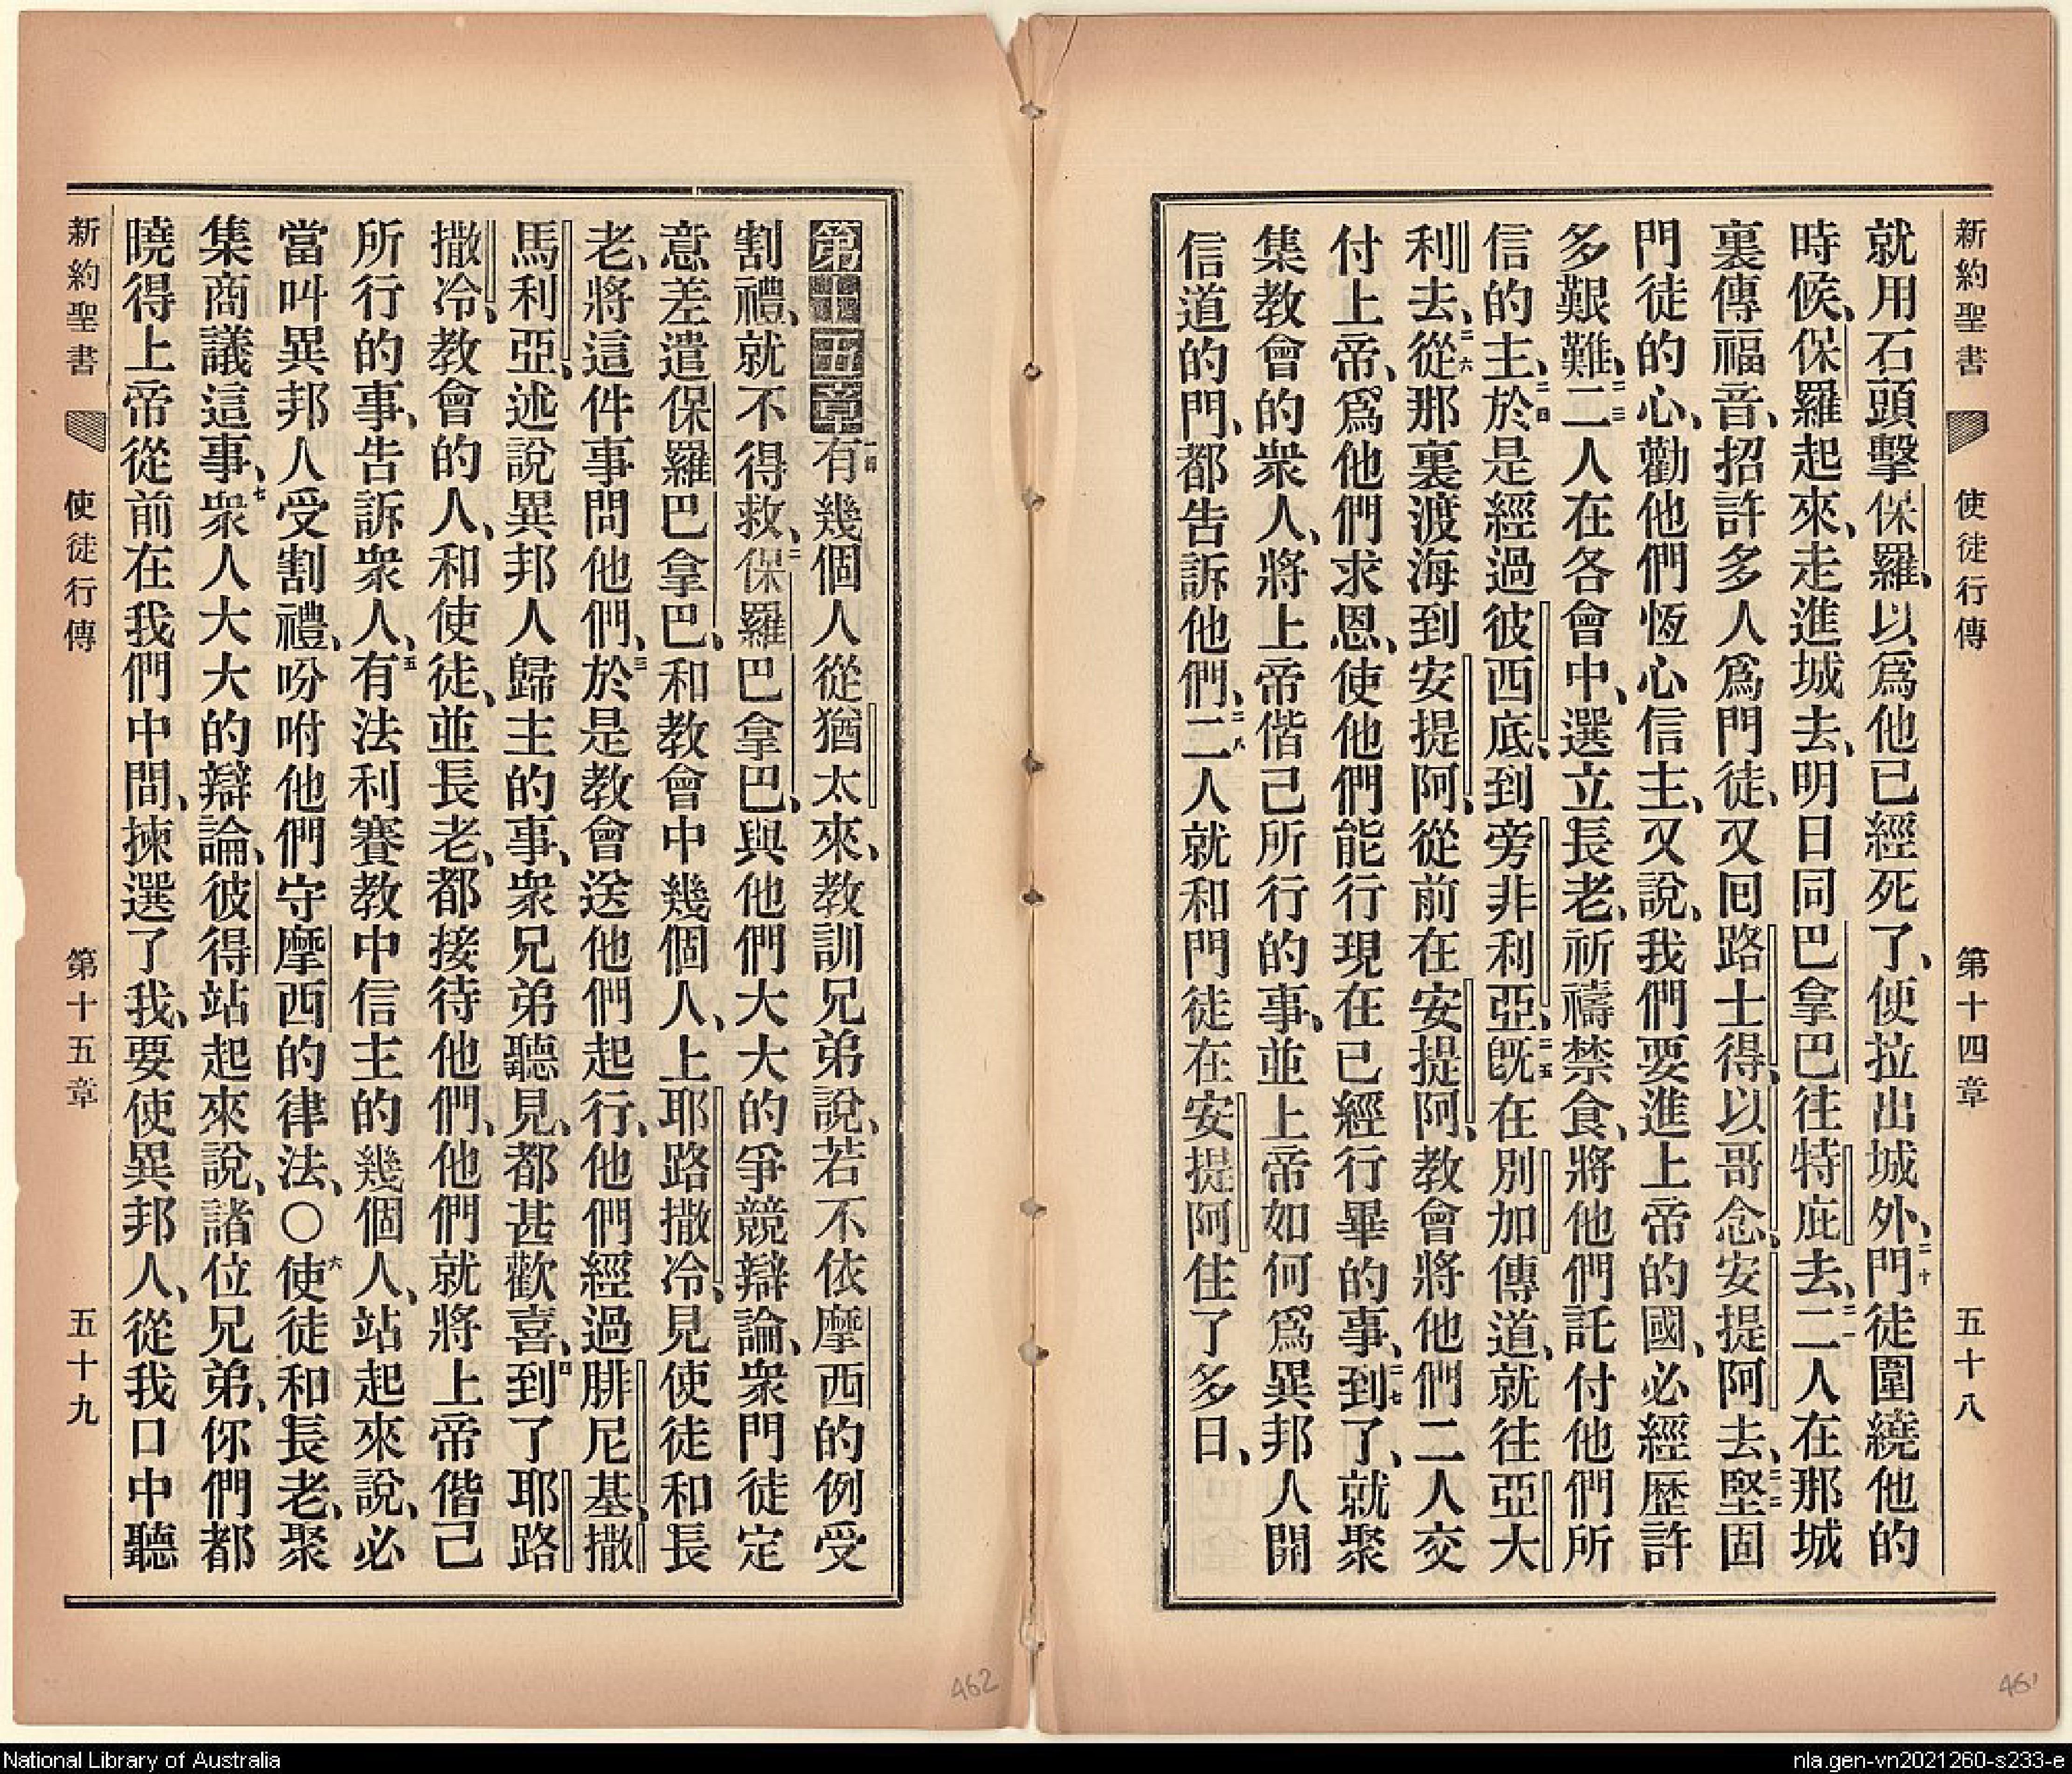 新約聖書 使徒行傳 第十四章 五十八
就用石頭擊保羅、以爲他已經死了、便拉出城外、二十門徒圍繞他的
時候、保羅起來、走進城去、明日同巴拿巴往特庇去、二一二人在那城
裏傳福音、招許多人爲門徒、又囘路士得、以哥念、安提阿去、二二堅固
門徒的心、勸他們恆心信主、又說、我們要進上帝的國、必經歴許
多艱難、二三二人在各會中、選立長老、祈禱禁食、將他們託付他們所
信的主、二四於是經過彼西底、到旁非利亞、二五既在別加傳道、就往亞大
利去、二六從那裏渡海到安提阿、從前在安提阿、教會將他們二人交
付上帝、爲他們求恩、使他們能行現在已經行畢的事、二七到了、就聚
集教會的衆人、將上帝偕己所行的事、並上帝如何爲異邦人開
信道的門、都告訴他們、二八二人就和門徒在安提阿住了多日、
第十五章一有幾個人從猶太來、教訓兄弟說、若不依摩西的例受
割禮、就不得救、二保羅巴拿巴、與他們大大的爭競辯論、衆門徒定
意差遣保羅巴拿巴、和教會中幾個人、上耶路撒冷、見使徒和長
老、將這件事問他們、三於是教會送他們起行、他們經過腓尼基、撒
馬利亞、述說異邦人歸主的事、衆兄弟聽見、都甚歡喜、四到了耶路
撒冷、教會的人、和使徒、並長老、都接待他們、他們就將上帝偕己
所行的事、告訴衆人、五有法利賽教中信主的幾個人、站起來說、必
當叫異邦人受割禮、吩咐他們守摩西的律法、〇六使徒和長老、聚
集商議這事、七衆人大大的辯論、彼得站起來說、諸位兄弟、你們都
曉得上帝從前在我們中間、揀選了我、要使異邦人、從我口中聽
新約聖書 使徒行傳 第十五章 五十九
462
461
National Library of Australia
nla.gen-vn2021260-s233-e